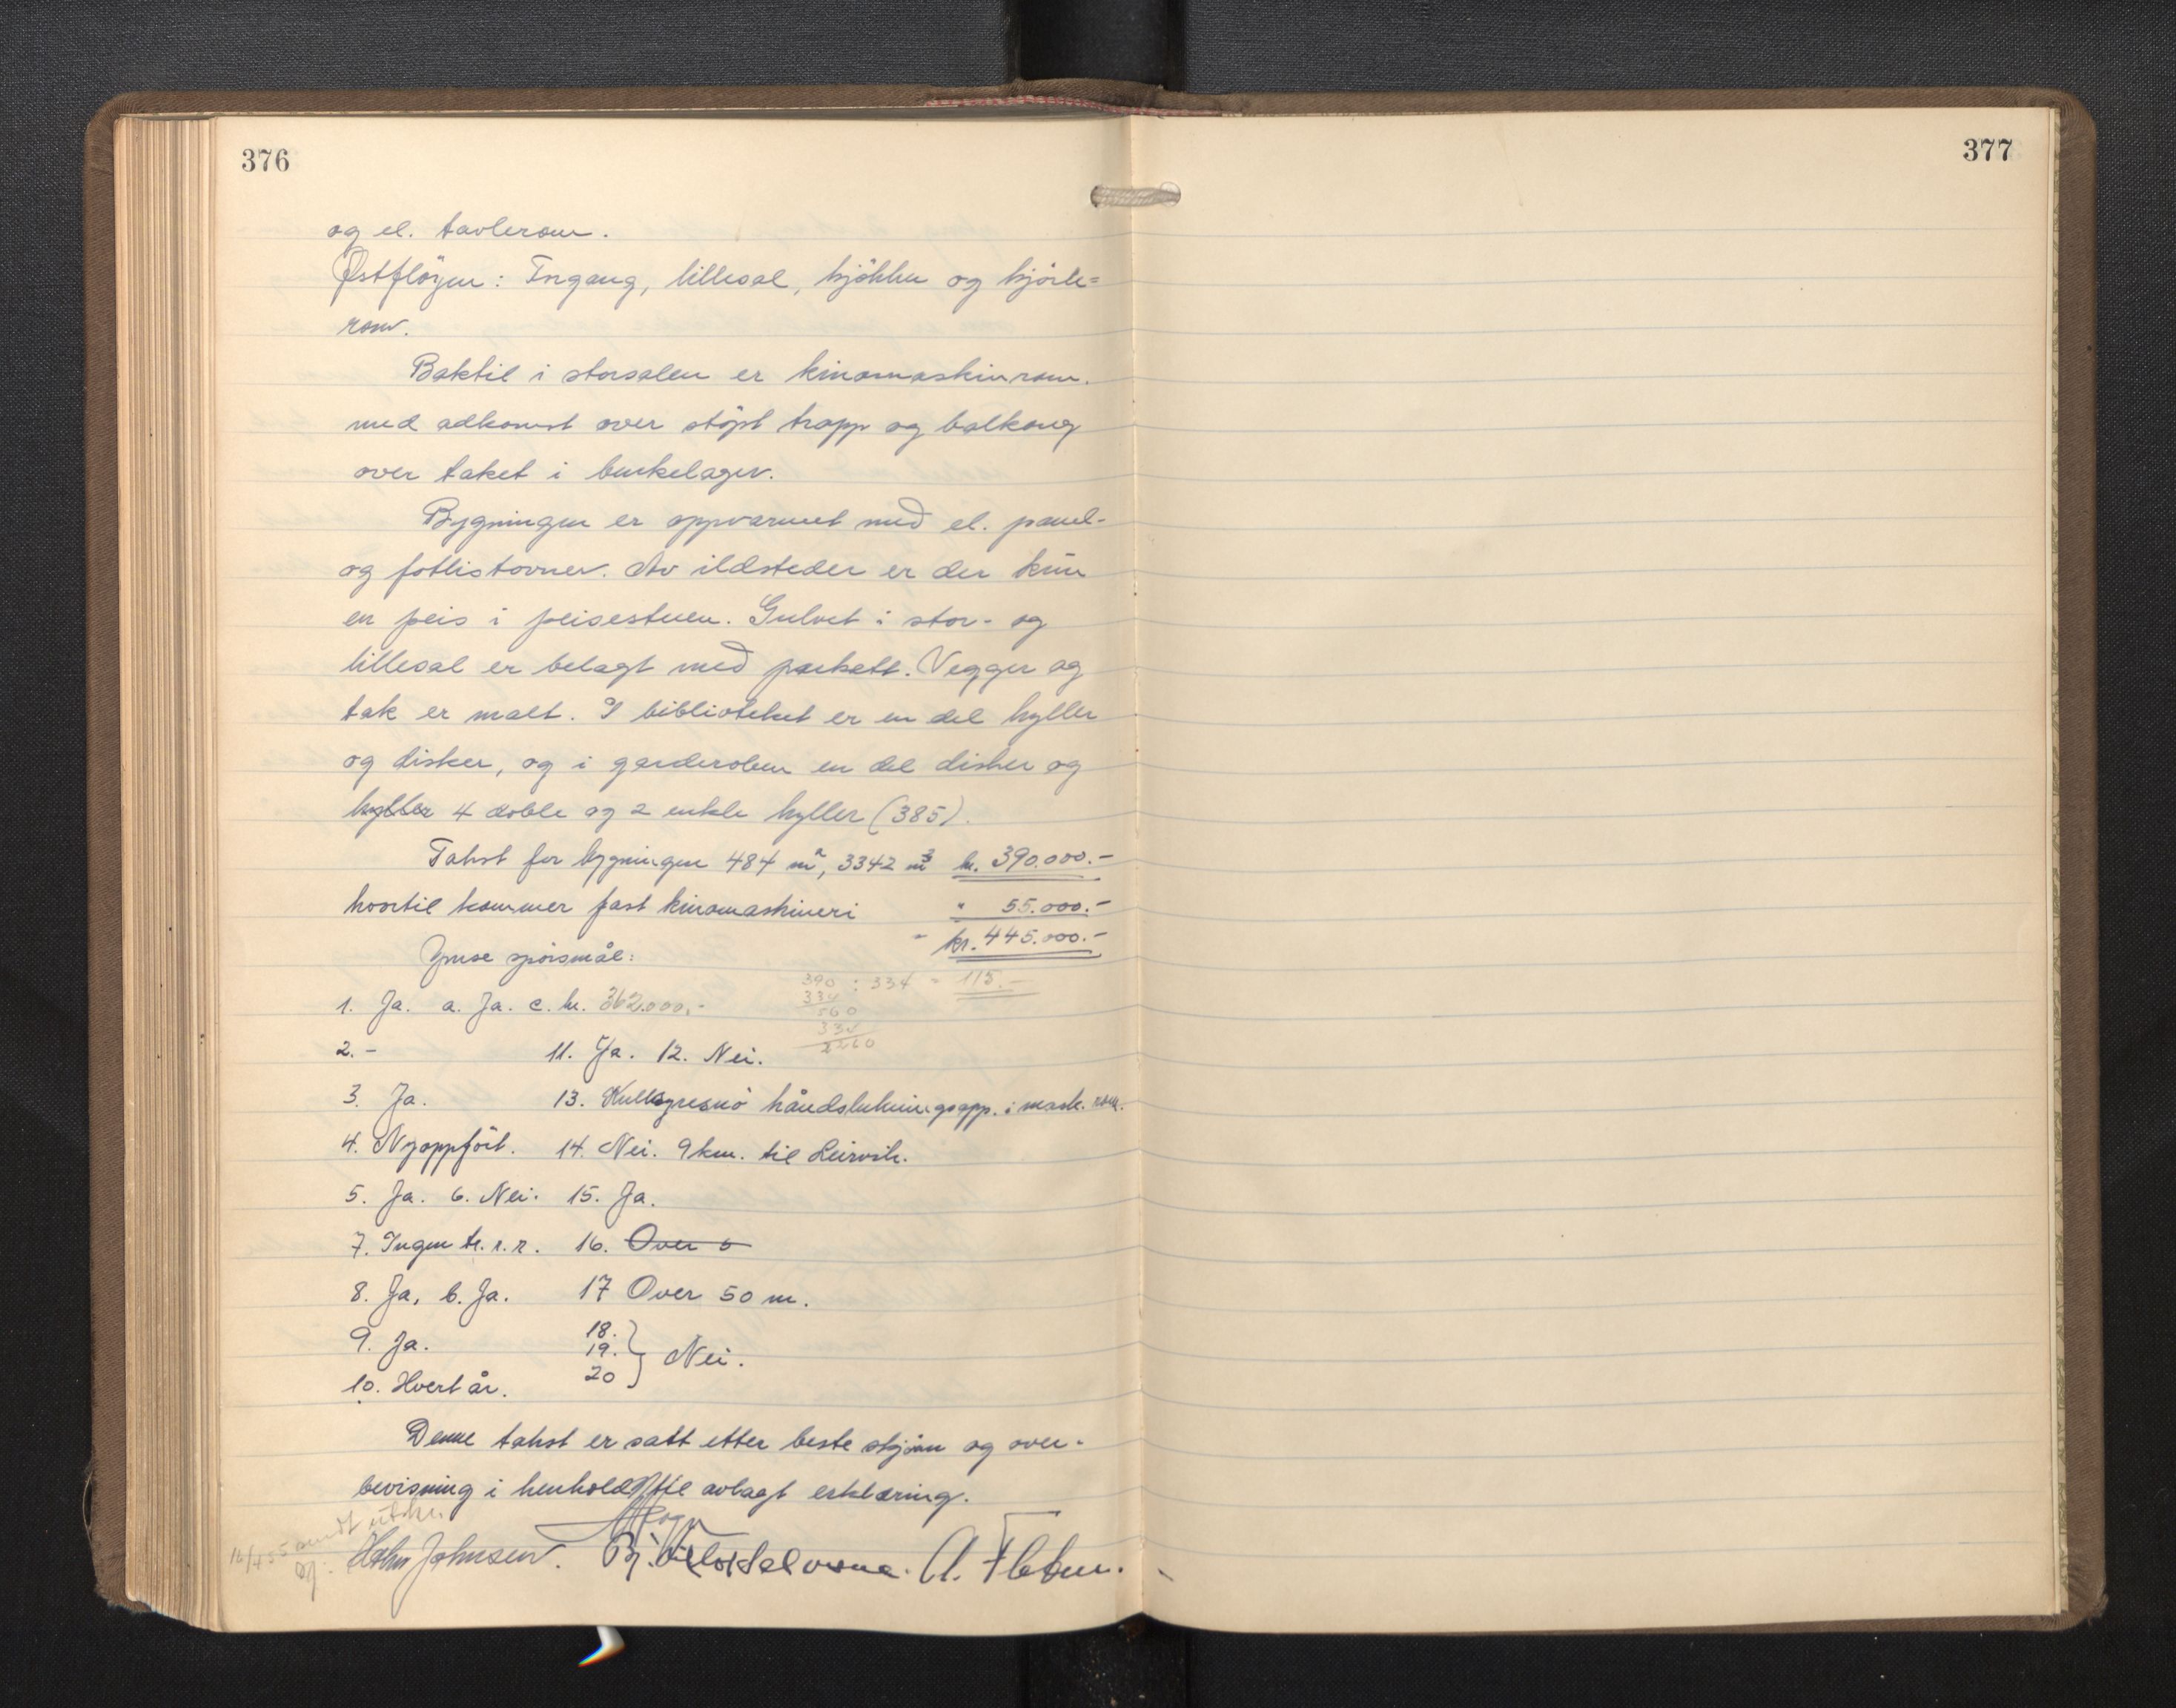 376
og el. tavlerom.
Østfløyen: Ingang, lillesal, kjökken og kjöle=
rom.
Baktil i storsalen er kinomaskinrom.
med adkomst over stöpt trapp og balkong
over taket i benkelager.
Bygningen er oppvarmet med el. panel-
og fotlistovner. Av ildsteder er der kun
en peis i peisestuen. Gulvet i stor- og
lillesal er belagt med parkett. Vegger og
tak er malt. I biblioteket er en del hyller
og disker, og i garderoben en del disker og
hyller 4 doble og 2 enkle hyller (385).
Takst for bygningen 484 m², 3342 m³ kr. 390.000.-
hvortil kommer fast kinomaskineri " 55.000.-
- kr. 445.000.-
Ymse spörsmål:
390 : 334 = 115.-
334
560
334
2260
1. Ja. a. Ja. c. kr. 362.000,-
2. - 11. Ja. 12. Nei.
3. Ja. 13. Kullsyresnö håndslukningsapp. i mask. rom.
4. Nyoppfört. 14. Nei. 9 km. til Leirvik.
5. Ja. 6. Nei. 15. Ja.
7. Ingen tr. r. r. 16. Over 5
8. Ja, b. Ja. 17 Over 50 m.
9. Ja. 18.
19. } Nei.
10. Hvert år. 20
Denne takst er satt etter beste skjönn og over-
bevisning i henhold til avlagt erklæring.
sendt utskr.
Johnsen. Bj. A. Fl
377